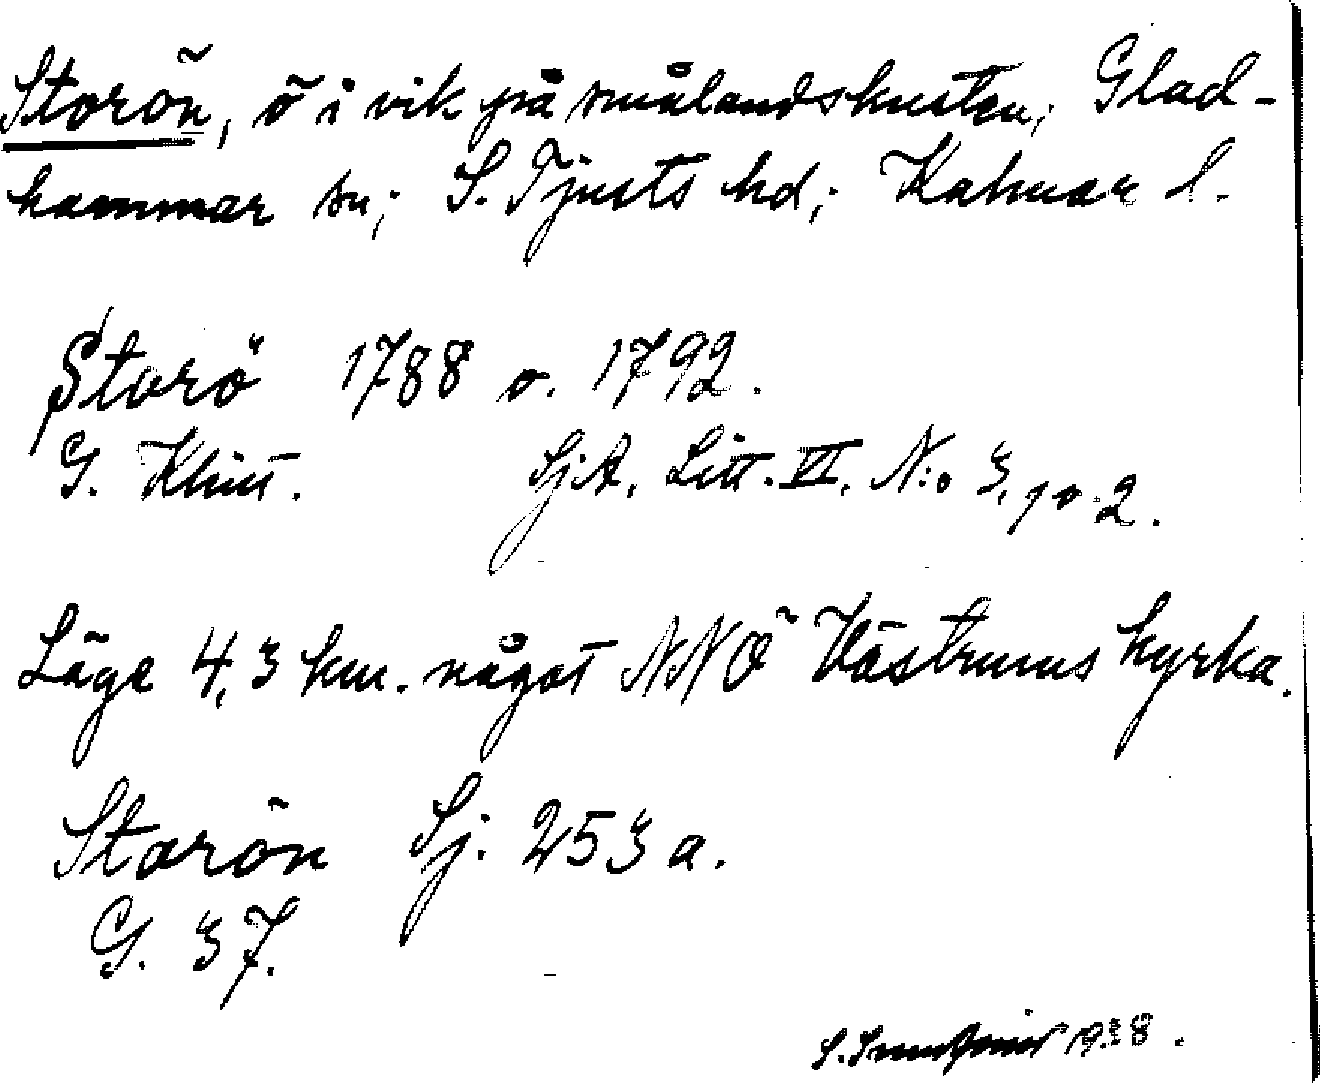 Storön, ö i vik på smålandskusten; Glad-
hammar sn; S. Tjusts hd; Kalmar l.
Storö 1788 o. 1792.
G. Klint. SjA. Litt. VI. N:o 3, 1 o 2.
Läge 4,3 km. något NNO Västrums kyrka.
Storön Sj. 253 a.
G. 37.
S. 1938.